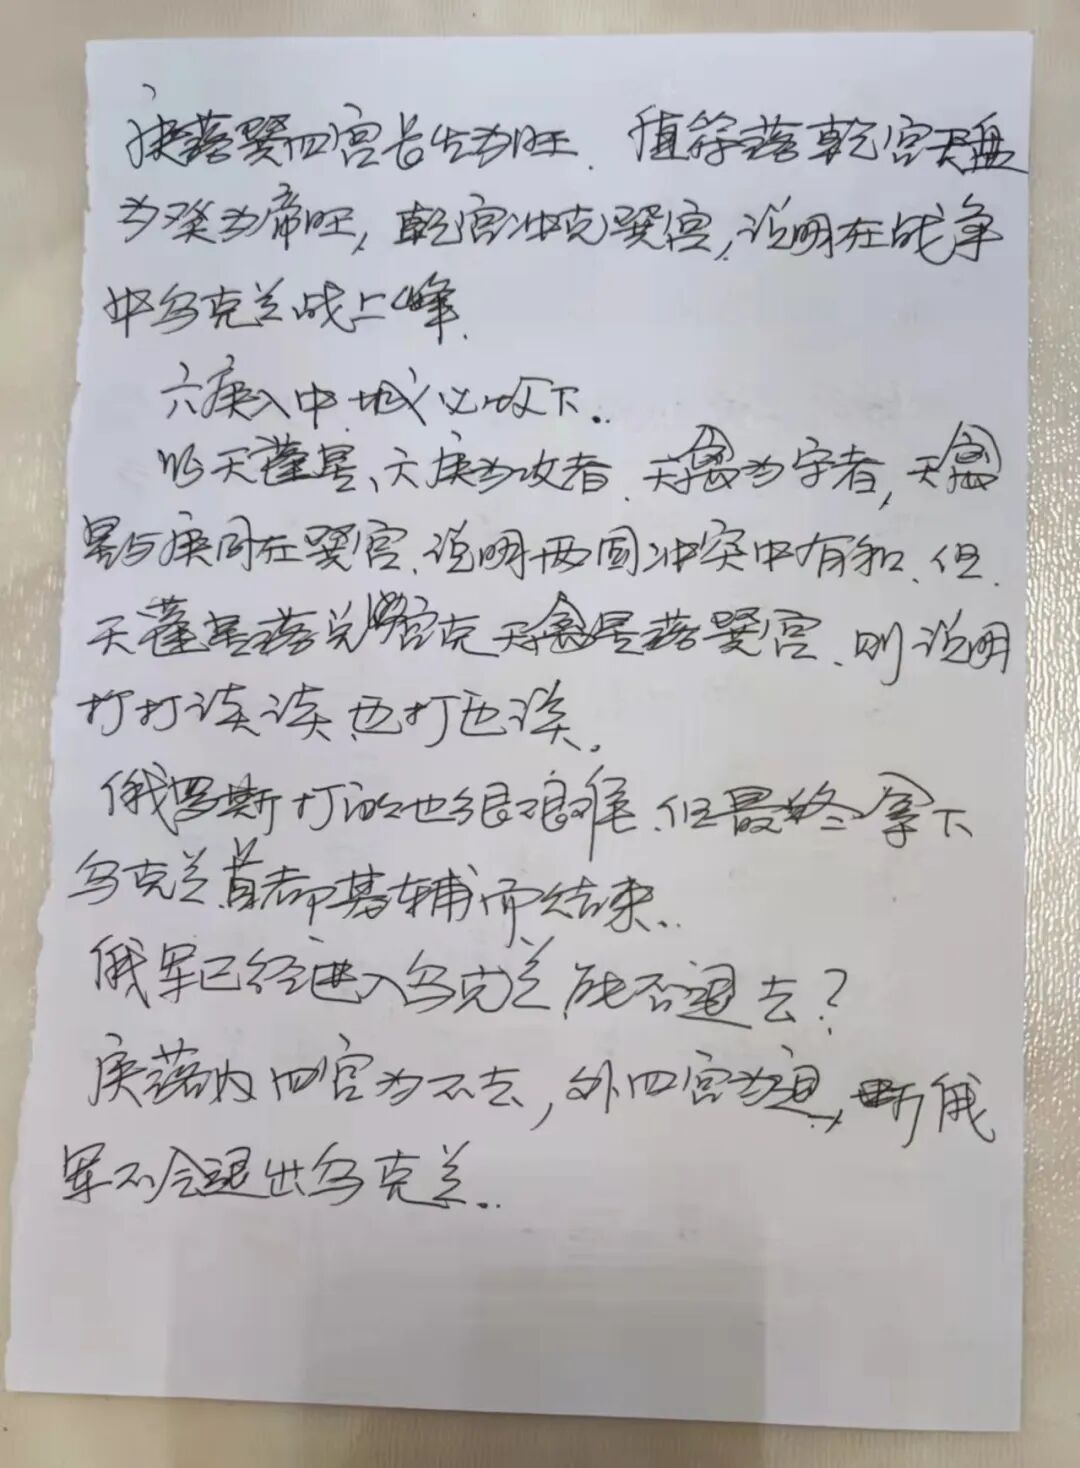 庚落巽四宫长生为旺.值符落乾宫天盘
为癸为帝旺,乾宫冲克巽宫,说明在战争
中乌克兰战上峰.
六庚入中城必攻下..
以天蓬星、六庚为攻者.天禽为守者,天禽
星与庚同在巽宫.说明两国冲突中有和.但.
天蓬星落兑宫克天禽星落巽宫.则说明
打打谈谈,边打边谈.
俄罗斯打的也很艰难.但最终拿下
乌克兰首都基辅而结束..
俄军已经进入乌克兰能否退去?
庚落内四宫为不去,外四宫为退,断俄
军不会退出乌克兰..